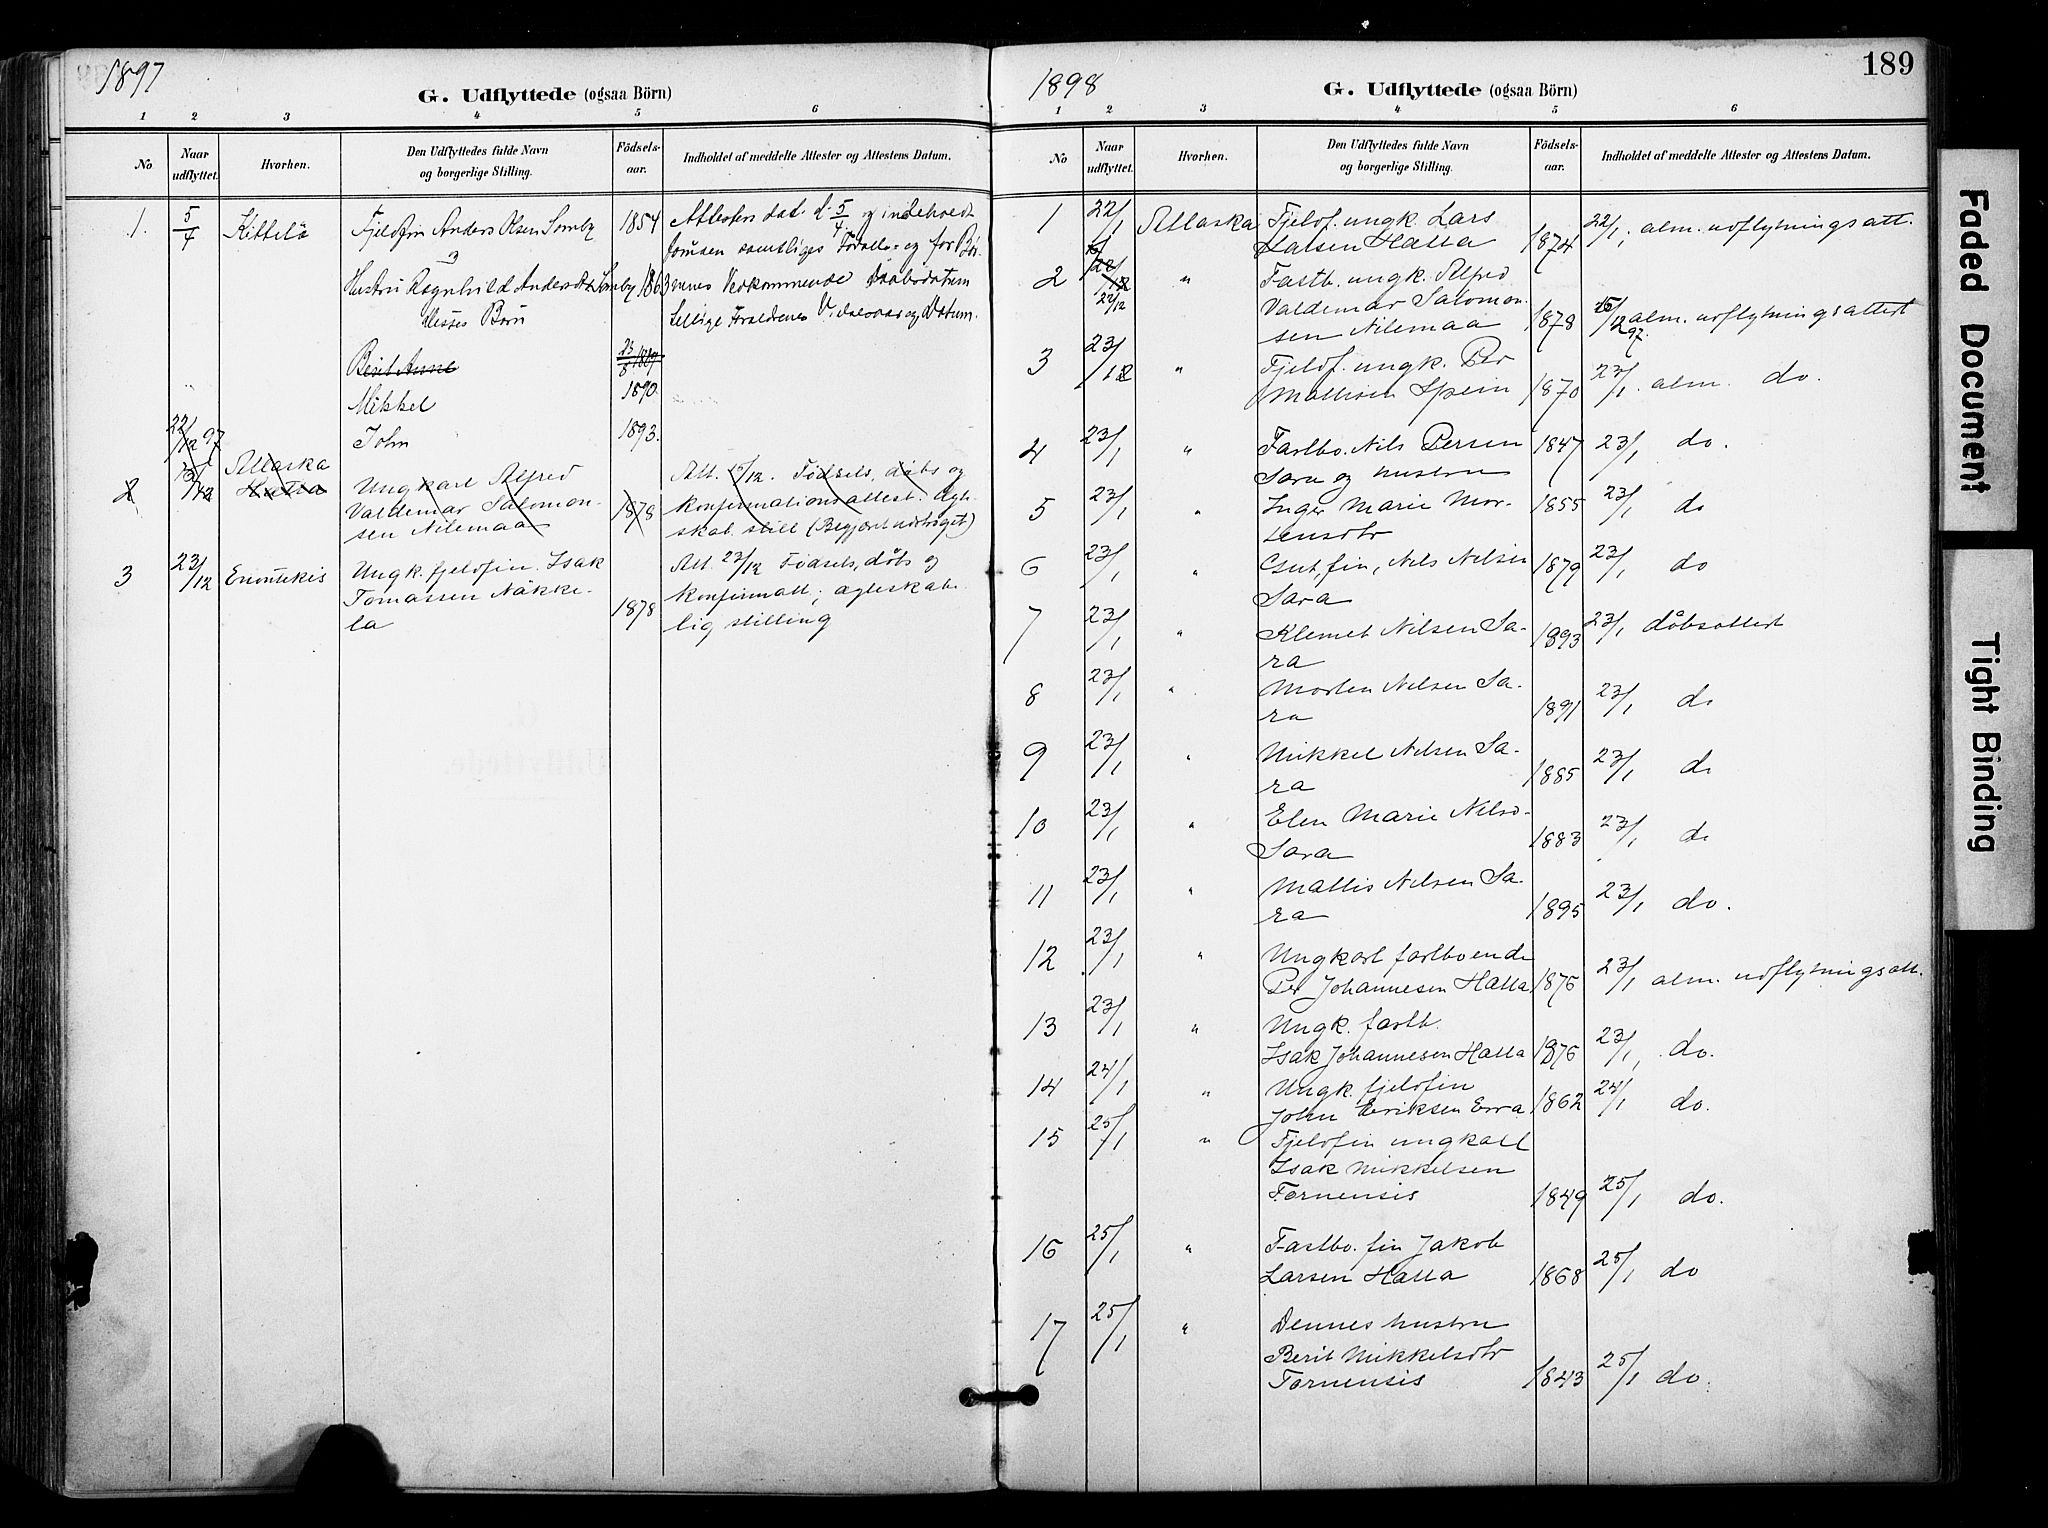 1897
G. Udflyttede (ogsaa Börn)
1 2 3 4 5 6
No. Naar udflyttet. Hvorhen. Den Udflyttedes fulde Navn og borgerlige Stilling. Födsels-aar. Indholdet af meddelte Attester og Attestens Datum.
1. 5/4 Kittelä Fjeldfin Anders Olsen Somby 1854 Attesten dat. d. 5/4 og indeholdt
samtliges Foræll. og for Bör-
Hustru Ragnhild Andersdtr Somby 1863 nenes Vedkommende Daabsdatum
disses Børn tillige Forældrenes og Datum.
Berit Anne 23/8 1889
Mikkel 1890
John 1893.
22/12 97
Allaska
2 Ungkarl Alfred Att. 15/12. Fødsels, døbs og
Valdemar Salomon- 1878 konfirmationsattest. Ægte-
sen Nilemaa skab. still (Begjæret udstraget)
3 23/12 Enontekis Ungk. fjeldfin. Isak Att. 23/12 Fødsels, døbs og
Tomassen Näkke- 1878 konfirmatt; ægteskabe-
la lig stilling
1898
189
G. Udflyttede (ogsaa Börn)
1 2 3 4 5 6
No Naar udflyttet. Hvorhen. Den Udflyttedes fulde Navn og borgerlige Stilling. Födsels-aar. Indholdet af meddelte Attester og Attestens Datum.
1 22/1 Allaska Fjeldf. ungk. Lars
Larsen Hatta 1874 22/1; alm. udflytningsatt.
2 22/12 " Fastb. ungk. Alfred
Valdemar Salomon-
sen Nilemaa 1878 15/12 97. alm. udflytningsattest
3 23/1 " Fjeldf. ungk. Per
Mattisen Spein 1870 23/1. alm. do.
4 23/1 " Fastbo. Nils Persen 1847 23/1 do.
Sara og hustru
5 23/1 " Inger Marie Mor- 1855 23/1 do
tensdtr
6 23/1 " Gut, fin, Nils Nilsen 1879 23/1 do
Sara
7 23/1 " Klemet Nilsen Sa- 1893 23/1 dåbsattest
ra
8 23/1 " Morten Nilsen Sa-
ra 1891 23/1 do
9 23/1 " Mikkel Nilsen Sa-
ra 1885 23/1 do
10 23/1 " Elen Marie Nilsd-
Sara 1883 23/1 do
11 23/1 " Mattis Nilsen Sa-
ra 1895 23/1 do.
12 23/1 " Ungkarl fastboende
Per Johannesen Hatta 1876 23/1 alm. udflytningsatt.
13 23/1 " Ungk. fastb.
Isak Johannesen Hatta 1876 23/1, do.
14 24/1 " Ungk. fjeldfin
John Eeriksen Erra 1862 24/1 do.
15 25/1 " Fjeldfin ungkarl
Isak Mikkelsen
Tornensis 1849 25/1 do.
16 25/1 " Fastbo. fin Jakob
Larsen Hatta 1868 25/1 do
17 25/1 " Dennes hustru
Berit Mikkelsdtr
Tornensis 1843 25/1 do.
Faded Document
Tight Binding